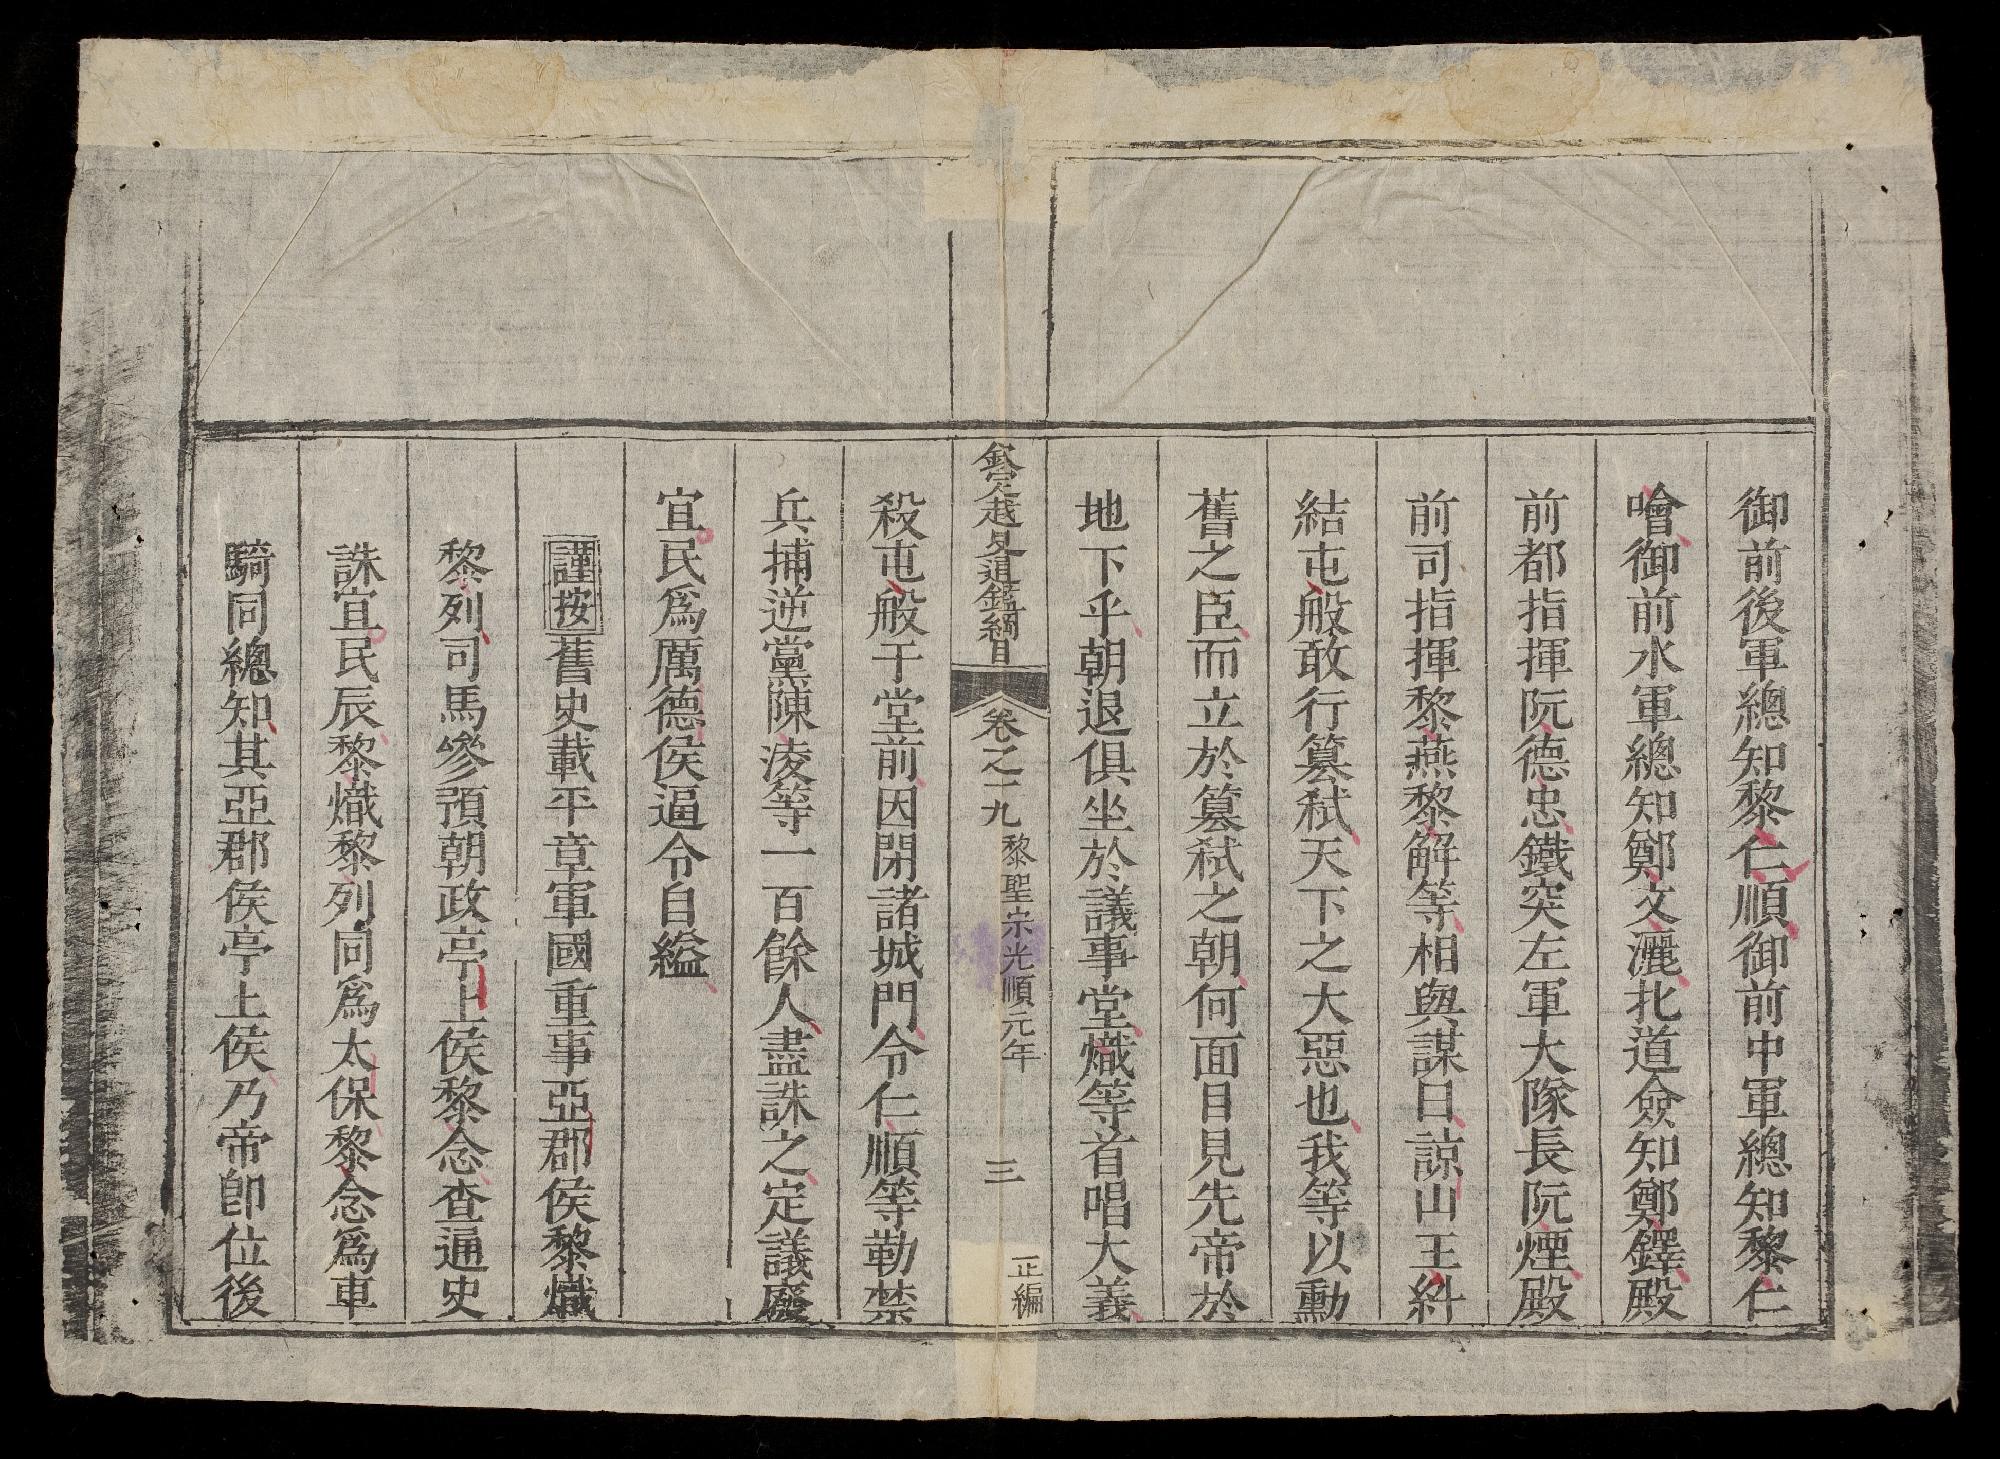 御前後軍總知黎仁順御前中軍總知黎仁
噲御前水軍總知鄭文灑北道僉知鄭鐸殿
前都指揮阮德忠鐵突左軍大隊長阮煙殿
前司指揮黎燕黎解等相與謀曰諒山王糾
結屯般敢行篡弒天下之大惡也我等以勳
舊之臣而立於篡弒之朝何面目見先帝於
地下乎朝退俱坐於議事堂熾等首唱大義
欽定越史通鑑綱目 卷之十九 黎聖宗光順元年 三 正編
殺屯般于堂前因閉諸城門令仁順等勒禁
兵捕逆黨陳凌等一百餘人盡誅之定議廢
宜民爲厲德侯逼令自縊
謹按舊史載平章軍國重事亞郡侯黎熾
黎列司馬參預朝政亭上侯黎念查通史
誅宜民辰黎熾黎列同爲太保黎念爲車
騎同總知其亞郡侯亭上侯乃帝卽位後